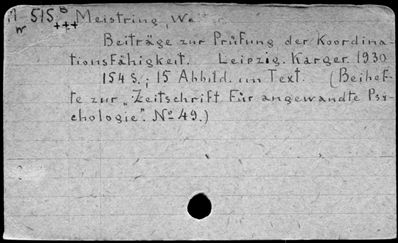 M 515 B Meistring, Walter.
Beiträge zur Prüfung der Koordina-
tionsfähigkeit. Leipzig. Karger. 1930
154 S.; 15 Abbild. im Text. (Beihef-
te zur „Zeitschrift für angewandte Psy-
chologie". No 49.)